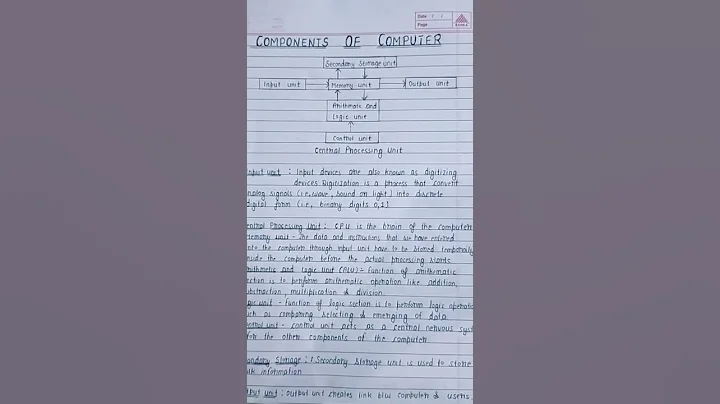 Date / /
Page
COMPONENTS OF COMPUTER
Secondary Storage unit
Input unit
Memory unit
Output unit
Arithmatic and
Logic unit
Control unit
Central Processing Unit
Input unit : Input devices are also known as digitizing
devices. Digitization is a process that convert
analog signals (i.e, wave, sound or light) into discrete
digital form (i.e, binary digits 0,1)
entral Processing Unit : CPU is the brain of the computer
Memory unit - The data and instructions that we have entered
into the computer through input unit have to be stored temporarily
nside the computer before the actual processing starts
rithmetic and Logic unit (ALU) :- function of arithmatic
section is to perform arithmatic operation like addition,
ubstraction, multiplication & division.
ogic unit - function of logic section is to perform logic operatio
uch as comparing selecting & emerging of data
ontrol unit - control unit acts as a central nervous syst
for the other components of the computer.
ondary Storage : Secondary storage unit is used to store
ulk information
utput unit : Output unit creates link b/w computer & users.